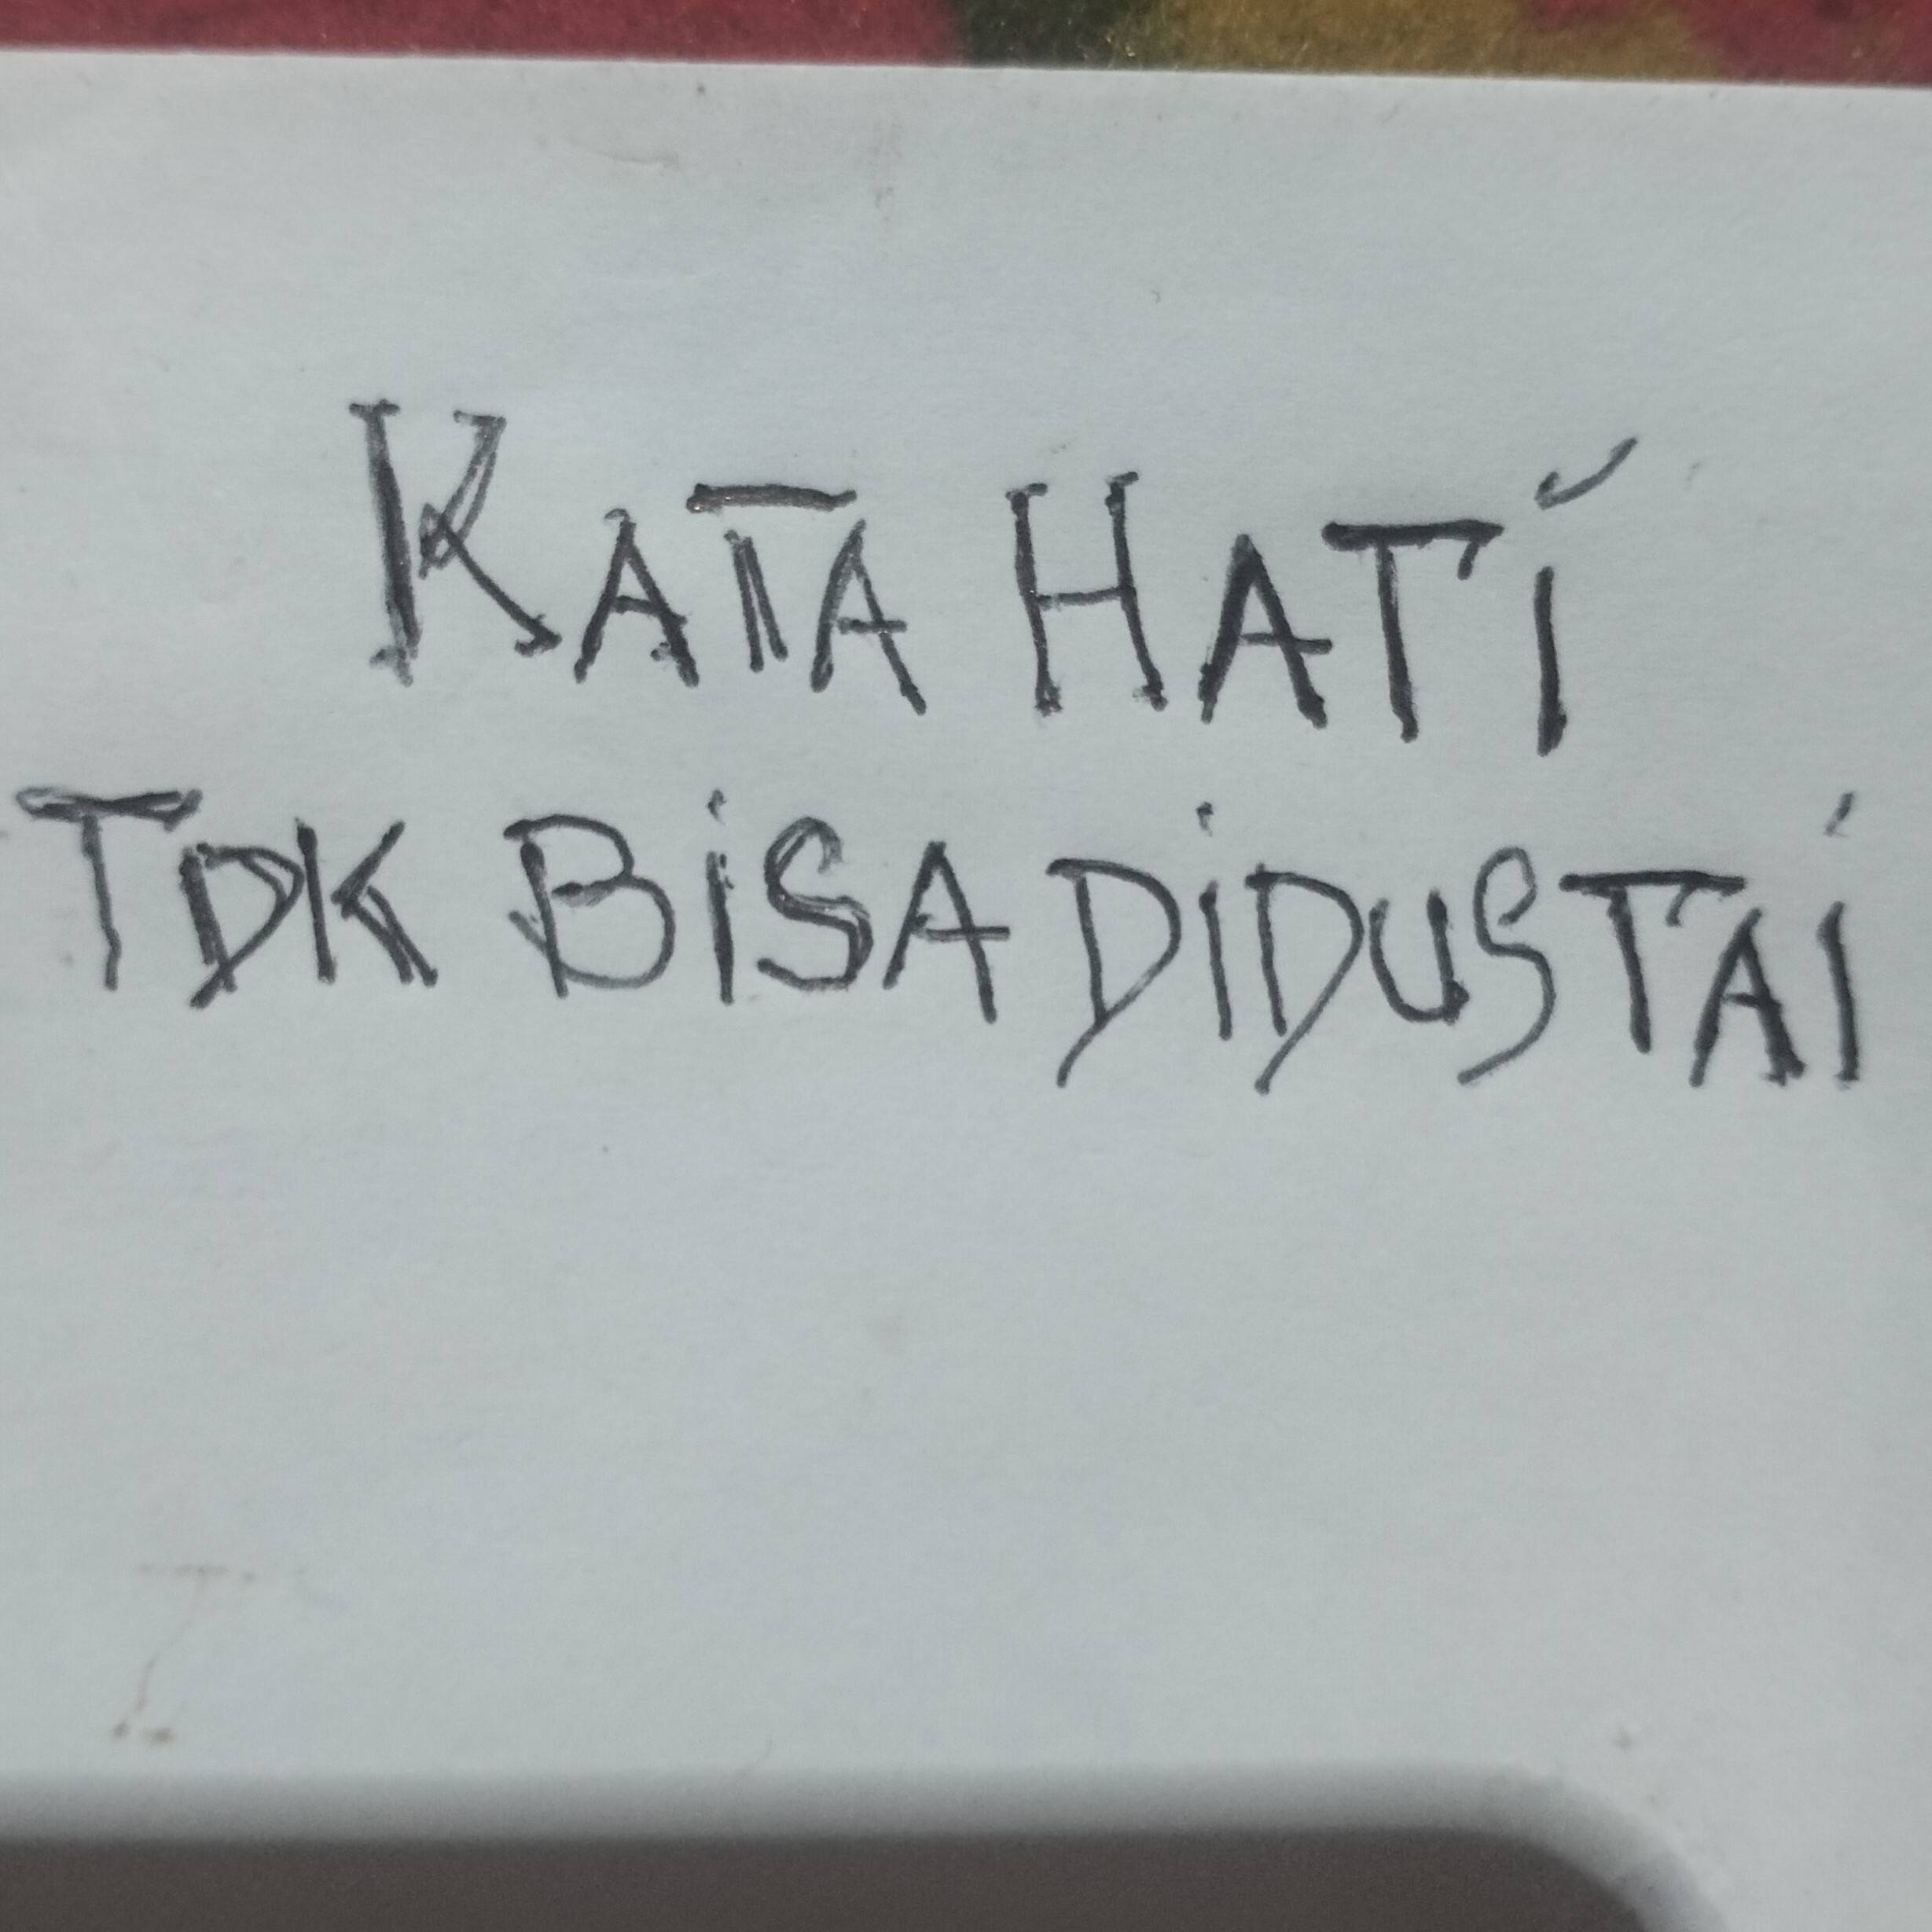 KATA HATi
TDK BiSA DiDUSTAi